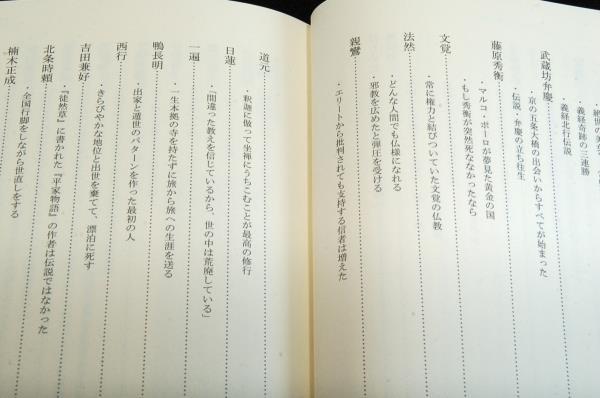 ・義経奇跡の三連勝
・義経北行伝説
武蔵坊弁慶
・京の五条大橋の出会いからすべてが始まった
・伝説・弁慶の立ち往生
藤原秀衡
・マルコ・ポーロが夢見た黄金の国
・もし秀衡が突然死ななかったなら
文覚
・常に権力と結びついていた文覚の仏教
法然
・どんな人間でも仏様になれる
・邪教を広めたと弾圧を受ける
親鸞
・エリートから批判されても支持する信者は増えた
道元
・釈迦に倣って坐禅にうちこむことが最高の修行
日蓮
・「間違った教えを信じているから、世の中は荒廃している」
一遍
・一生本拠の寺を持たずに旅から旅への生涯を送る
鴨長明
・出家と遁世のパターンを作った最初の人
西行
・きらびやかな地位と出世を棄てて、漂泊に死す
吉田兼好
・『徒然草』に書かれた『平家物語』の作者は伝説ではなかった
北条時頼
・全国行脚をしながら世直しをする
楠木正成